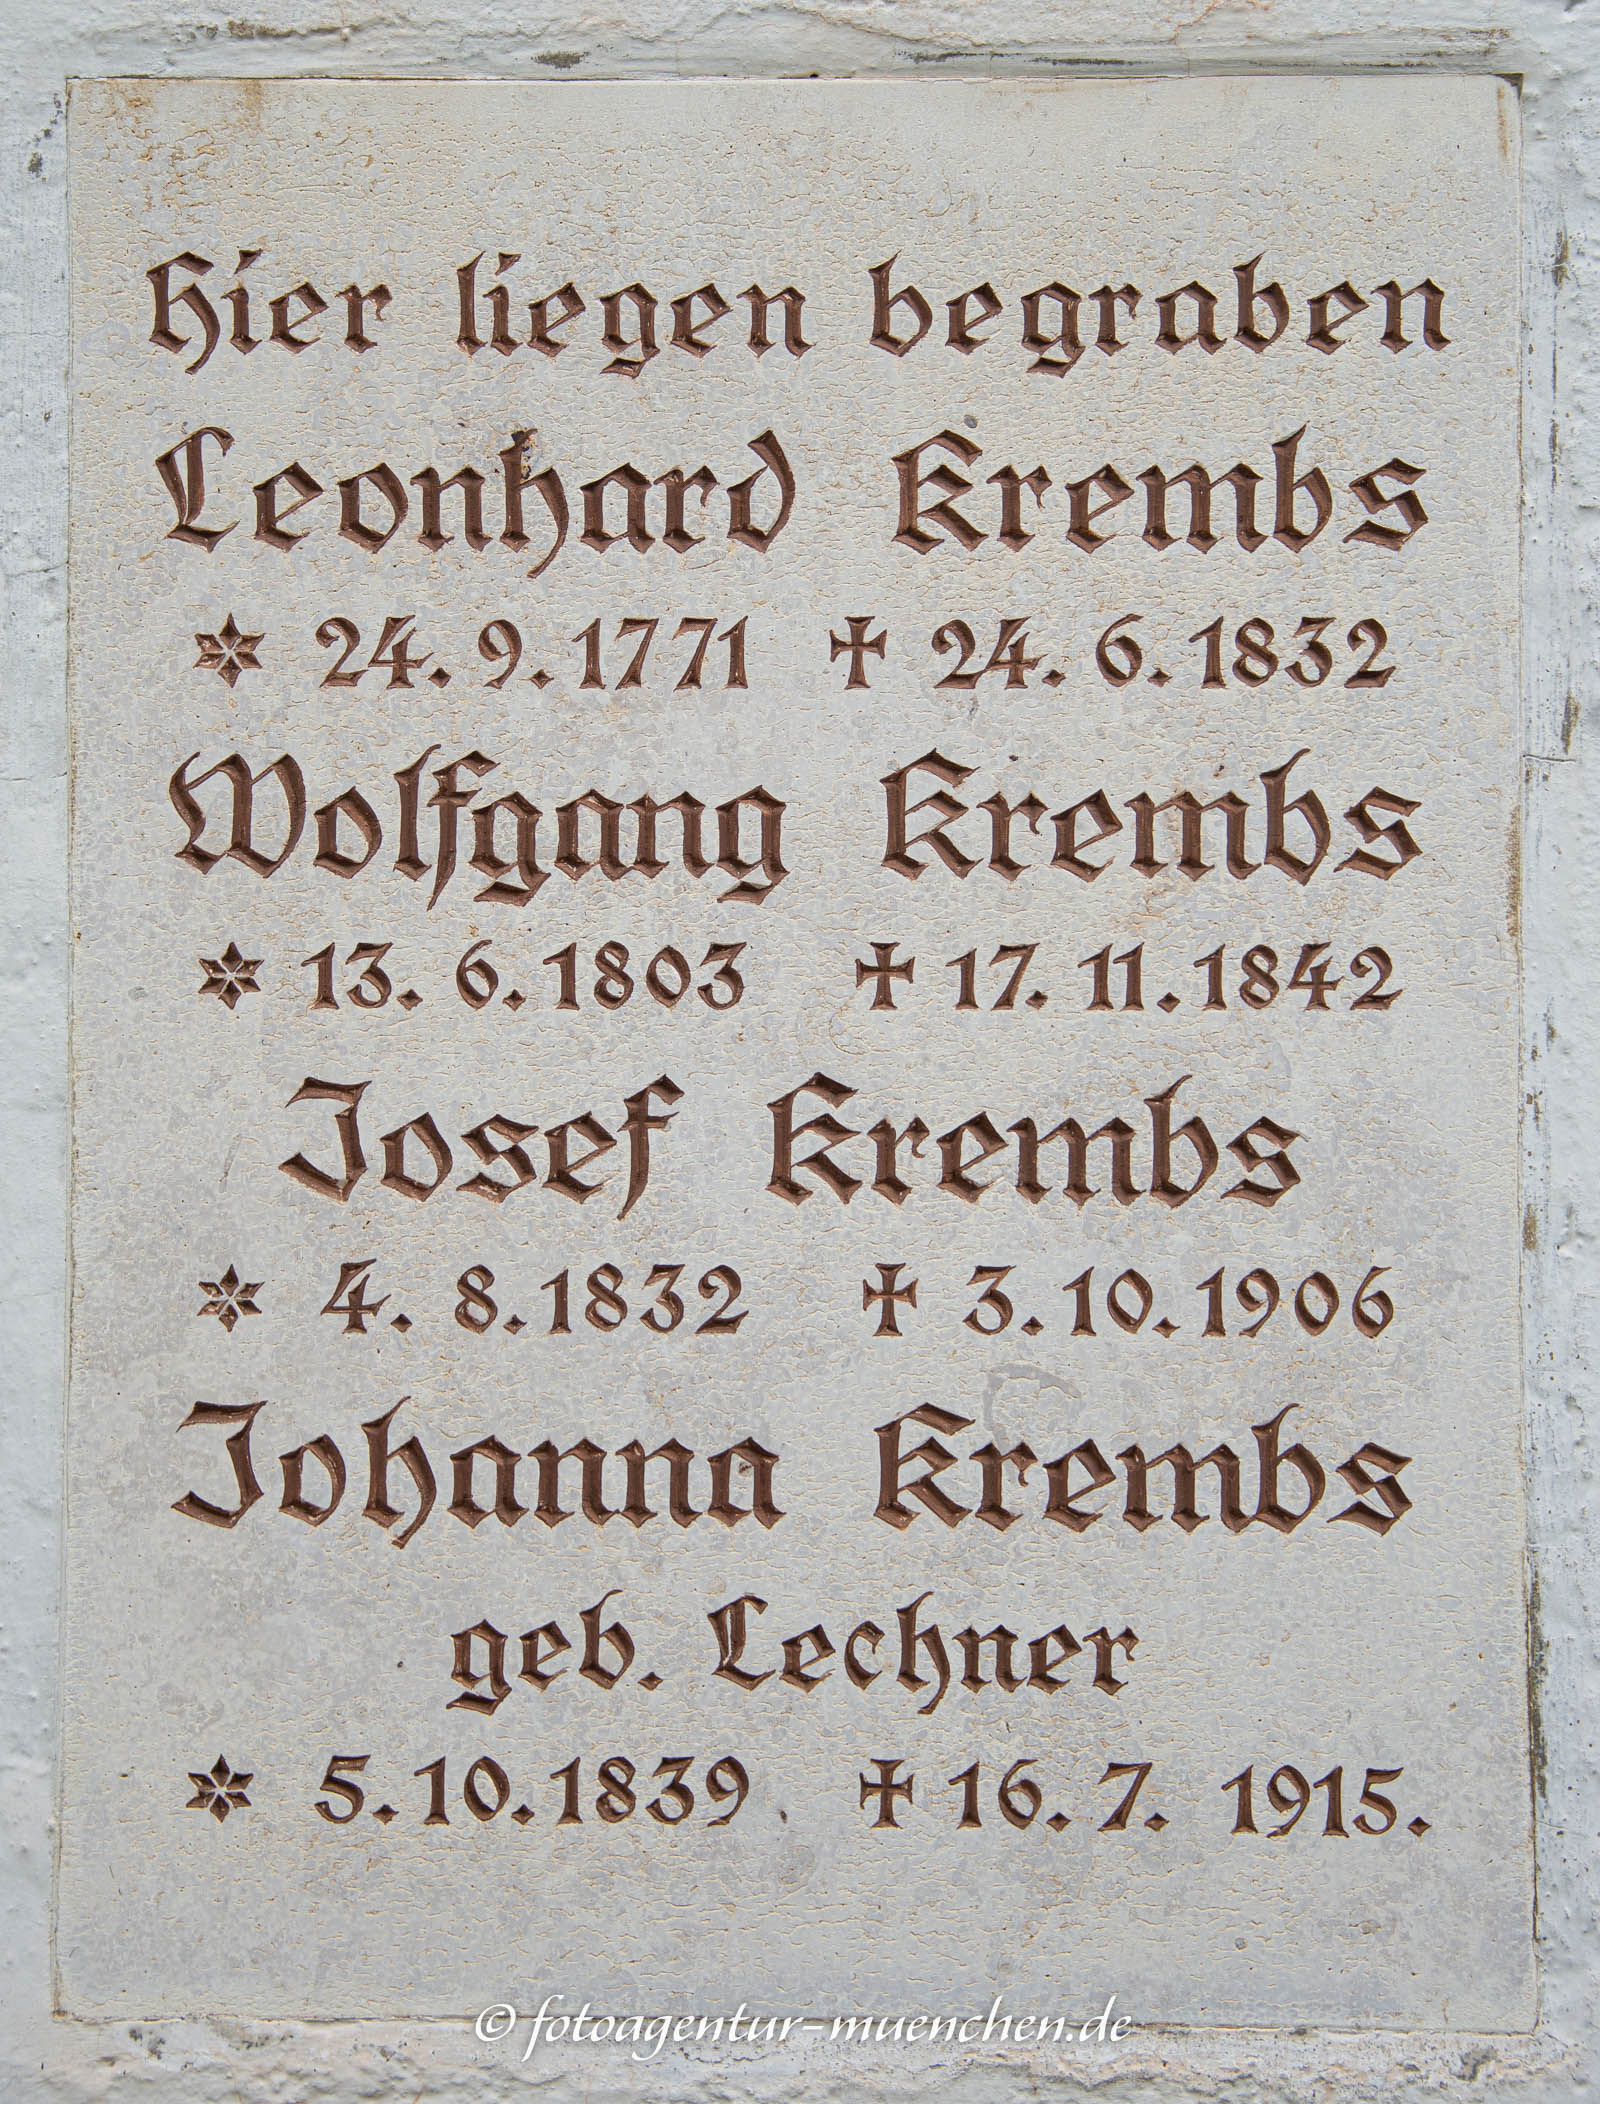 Hier liegen begraben
Leonhard Krembs
* 24. 9. 1771 ✝ 24. 6. 1832
Wolfgang Krembs
* 13. 6. 1803 ✝ 17. 11. 1842
Josef Krembs
* 4. 8. 1832 ✝ 3. 10. 1906
Johanna Krembs
geb. Lechner
* 5. 10. 1839 ✝ 16. 7. 1915.
© fotoagentur-muenchen.de